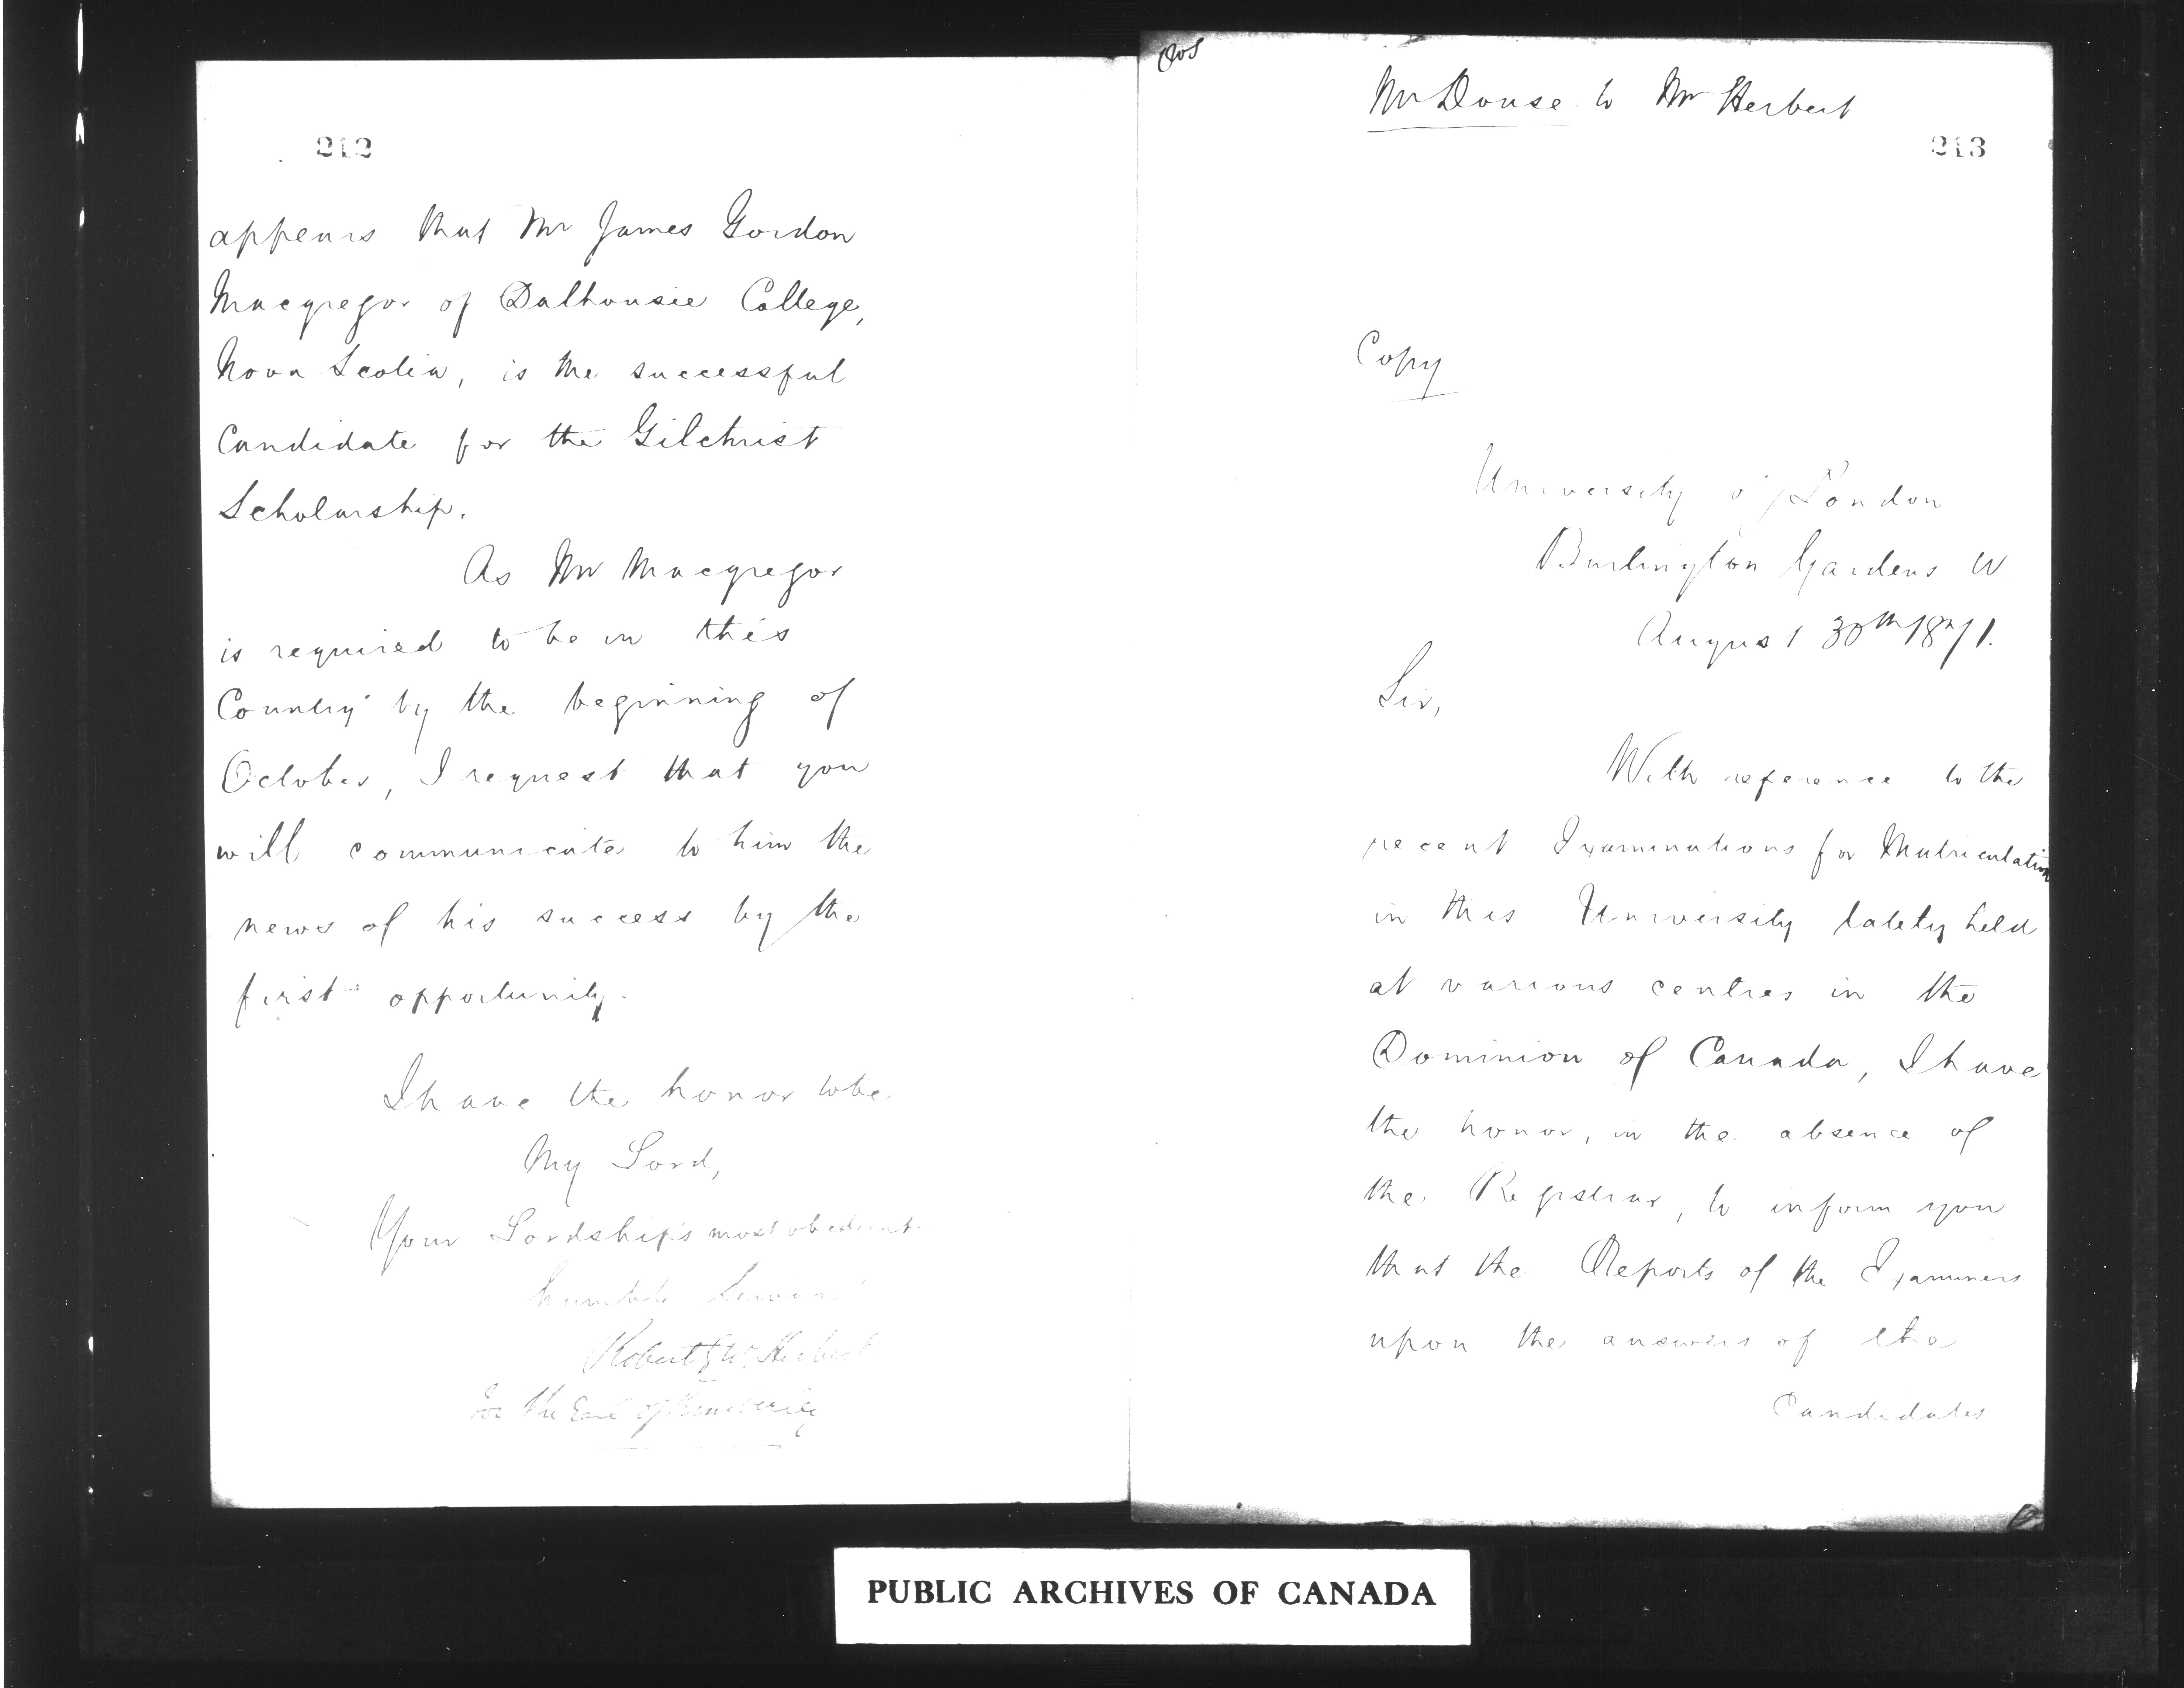 212
appears that Mr James Gordon
Macgregor of Dalhousie College,
Nova Scotia, is the successful
Candidate for the Gilchrist
Scholarship.
As Mr Macgregor
is required to be in this
Country by the beginning of
October, I request that you
will communicate to him the
news of his success by the
first opportunity.
I have the honor to be
My Lord,
Your Lordship's most obedient
humble Servant
Robert G W Herbert
for the Earl of Kimberley
Mr Douse to Mr Herbert
213
Copy
University of London
Burlington Gardens W
August 30th 1871.
Sir,
With reference to the
recent Examinations for Matriculation
in this University lately held
at various centres in the
Dominion of Canada, I have
the honor, in the absence of
the Registrar, to inform you
that the Reports of the Examiners
upon the answers of the
Candidates
PUBLIC ARCHIVES OF CANADA